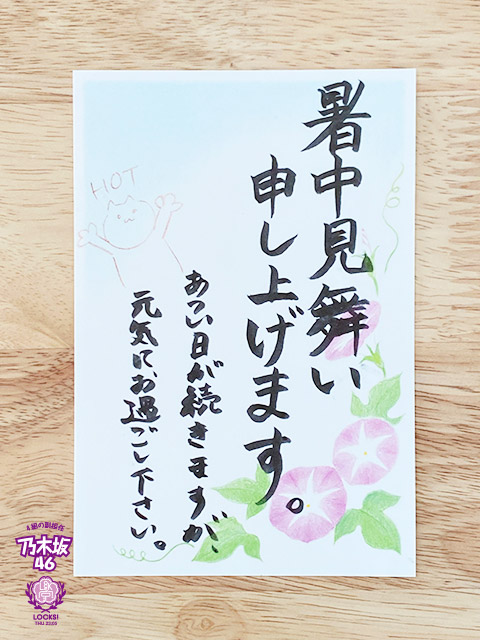 暑中見舞い
申し上げます。
あつい日が続きますが、
元気にお過ごし下さい。
HOT
4組の副担任
乃木坂
46
LOCKS!
THU 23:08